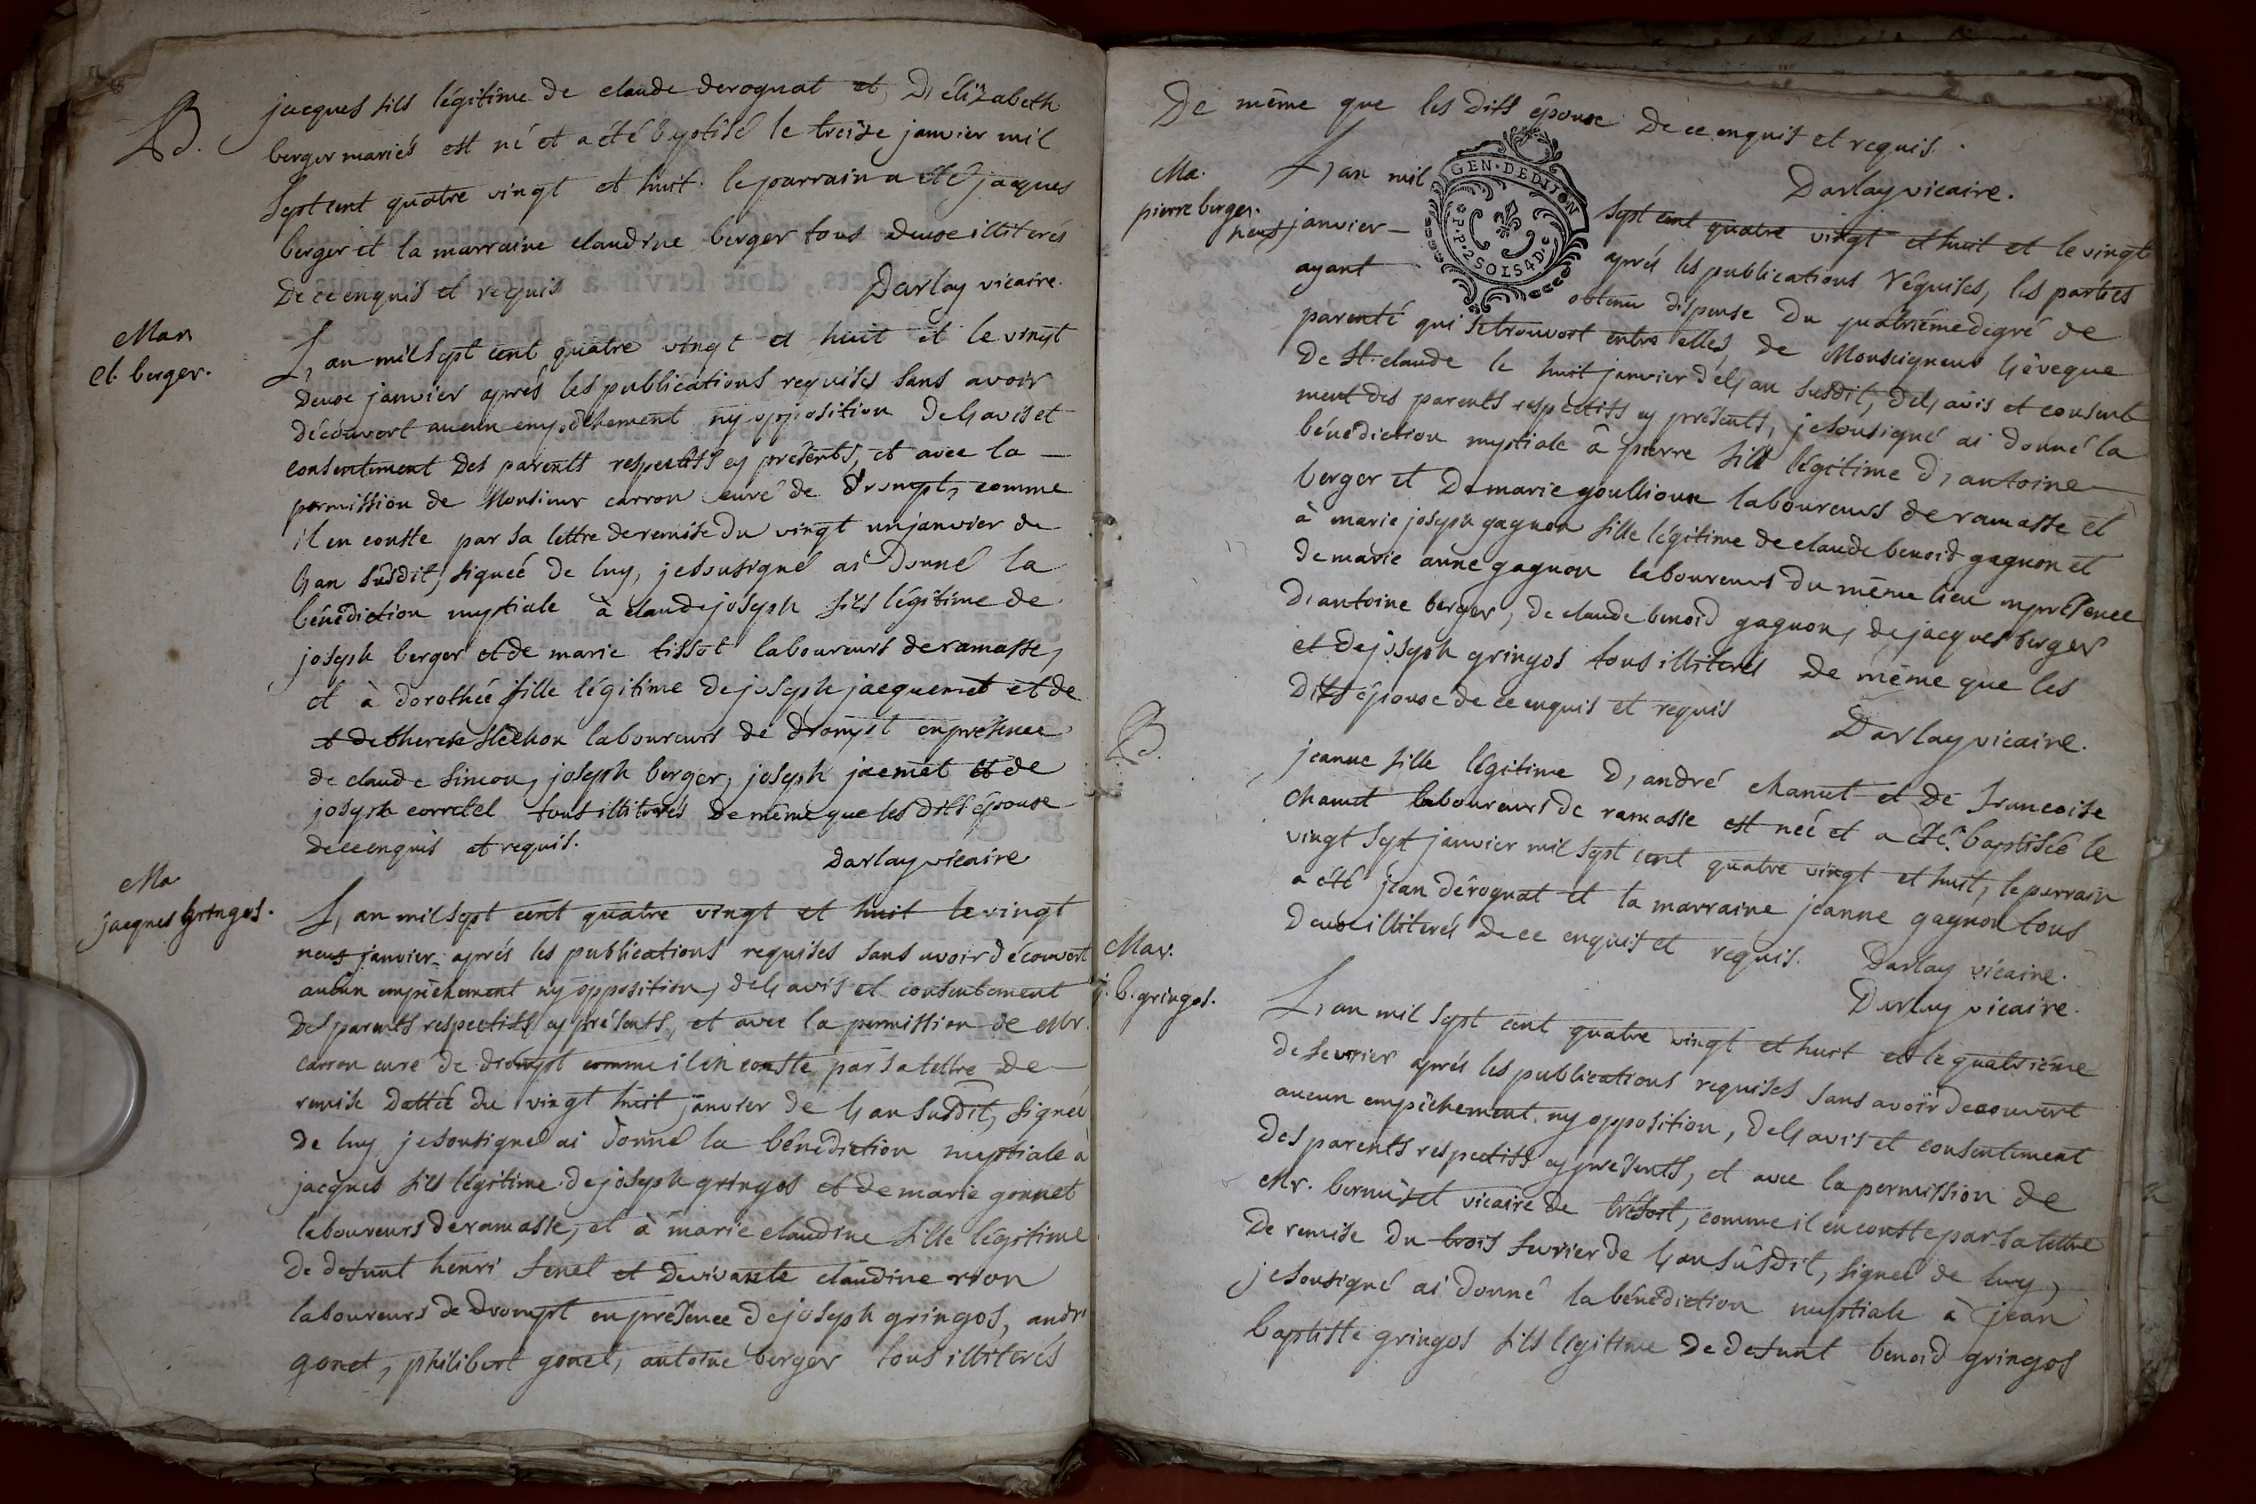 B. jacques fils légitime de claude derognat et D'élizabeth
berger mariés est né et a été baptisé le treize janvier mil
sept cent quatre vingt et huit. le parrain a été jacques
berger et la marraine claudine berger tous deuse illiterés
De ce enquis et requis Darlay vicaire.
Mar.
cl. berger.
L'an mil sept cent quatre vingt et huit et le vingt
deuse janvier aprés les publications requises sans avoir
découvert aucun empêchement ny opposition de l'avis et
consentement Des parents respectifs cy présents, et avec la
permission de Monsieur carron curé de drompt, comme
il en conste par sa lettre de remise Du vingt un janvier de
l'an sûsdit, signeé de luy, je sousigné ai Donné la
bénédiction nuptiale à claude joseph fils légitime de
joseph berger et de marie tissot laboureurs de ramasse,
et à dorotheé fille légitime de joseph jaequemet et de
et de therese laboureurs de drompt en présence
de claude simeon, joseph berger, joseph jaemet et de
joseph corretel tous illiterés De même que les dits épouse
de ce enquis et requis.
Darlay vicaire
Ma.
jacques gringos.
L'an mil sept cent quatre vingt et huit le vingt
neuf janvier aprés les publications requises sans avoir découvert
aucun empêchement ny opposition, de l'avis et consentement
Des parents respectifs cy présents, et avec la permission de Mr.
carron curé de drompt comme il en conste par sa lettre De
remise Datteé du vingt huit janvier de l'an susdit, signeé
de luy je sousigné ai donné la bénédiction nuptiale à
jacques fils légitime de joseph gringos et de marie gonnet
laboureurs de ramasse, et à marie claudine fille légitime
De defunt henri fenel et De vivante claudine rion
laboureurs de Drompt en présence de joseph gringos, andré
gonet, philibert gonet, antoine berger tous illiterés
De même que les dits épouse De ce enquis et requis.
Darlay vicaire.
Ma.
pierre berger.
GEN·DE DIJON
P.P. 2 SOLS 4 D.
L'an mil sept cent quatre vingt et huit et le vingt
neuf janvier aprés les publications réquises, les parties
ayant obtenu dispense Du quatriéme degré de
parenté qui se trouvoit entre elles, de Monseigneur l'évêque
De St. claude le huit janvier de l'an susdit, de l'avis et consente
ment des parents respectifs cy présents, je sousigné ai donné la
bénédiction nuptiale â pierre fils légitime d'antoine
berger et De marie goullioux laboureurs de ramasse et
à marie joseph gagnon fille légitime de claude benoid gagnon et
de marie anne gagnon laboureurs Du même lieu en présence
D'antoine berger, de claude benoid gagnon, de jacques berger
et de joseph gringos tous illiterés De même que les
Dits épouse de ce enquis et requis
Darlay vicaire.
B. jeanne fille légitime D'andré chanut et De francoise
chanut laboureurs de ramasse est neé et a été baptiseé le
vingt sept janvier mil sept cent quatre vingt et huit, le parrain
a été jean dérognat et la marraine jeanne gagnon tous
Deuse illiterés de ce enquis et requis. Darlay vicaire.
Darlay vicaire.
Mar.
j. b. gringos.
L'an mil sept cent quatre vingt et huit et le quatriéme
de fevrier aprés les publications requises sans avoir decouvert
aucun empêchement ny opposition, de l'avis et consentement
Des parents respectifs cy présents, et avec la permission de
Mr. vicaire de tréfort, comme il en conste par sa lettre
De remise du trois fevrier de l'an sûsdit, signeé de luy,
je sousigné ai donné la bénédiction nuptiale à jean
baptiste gringos fils légitime De defunt benoid gringos